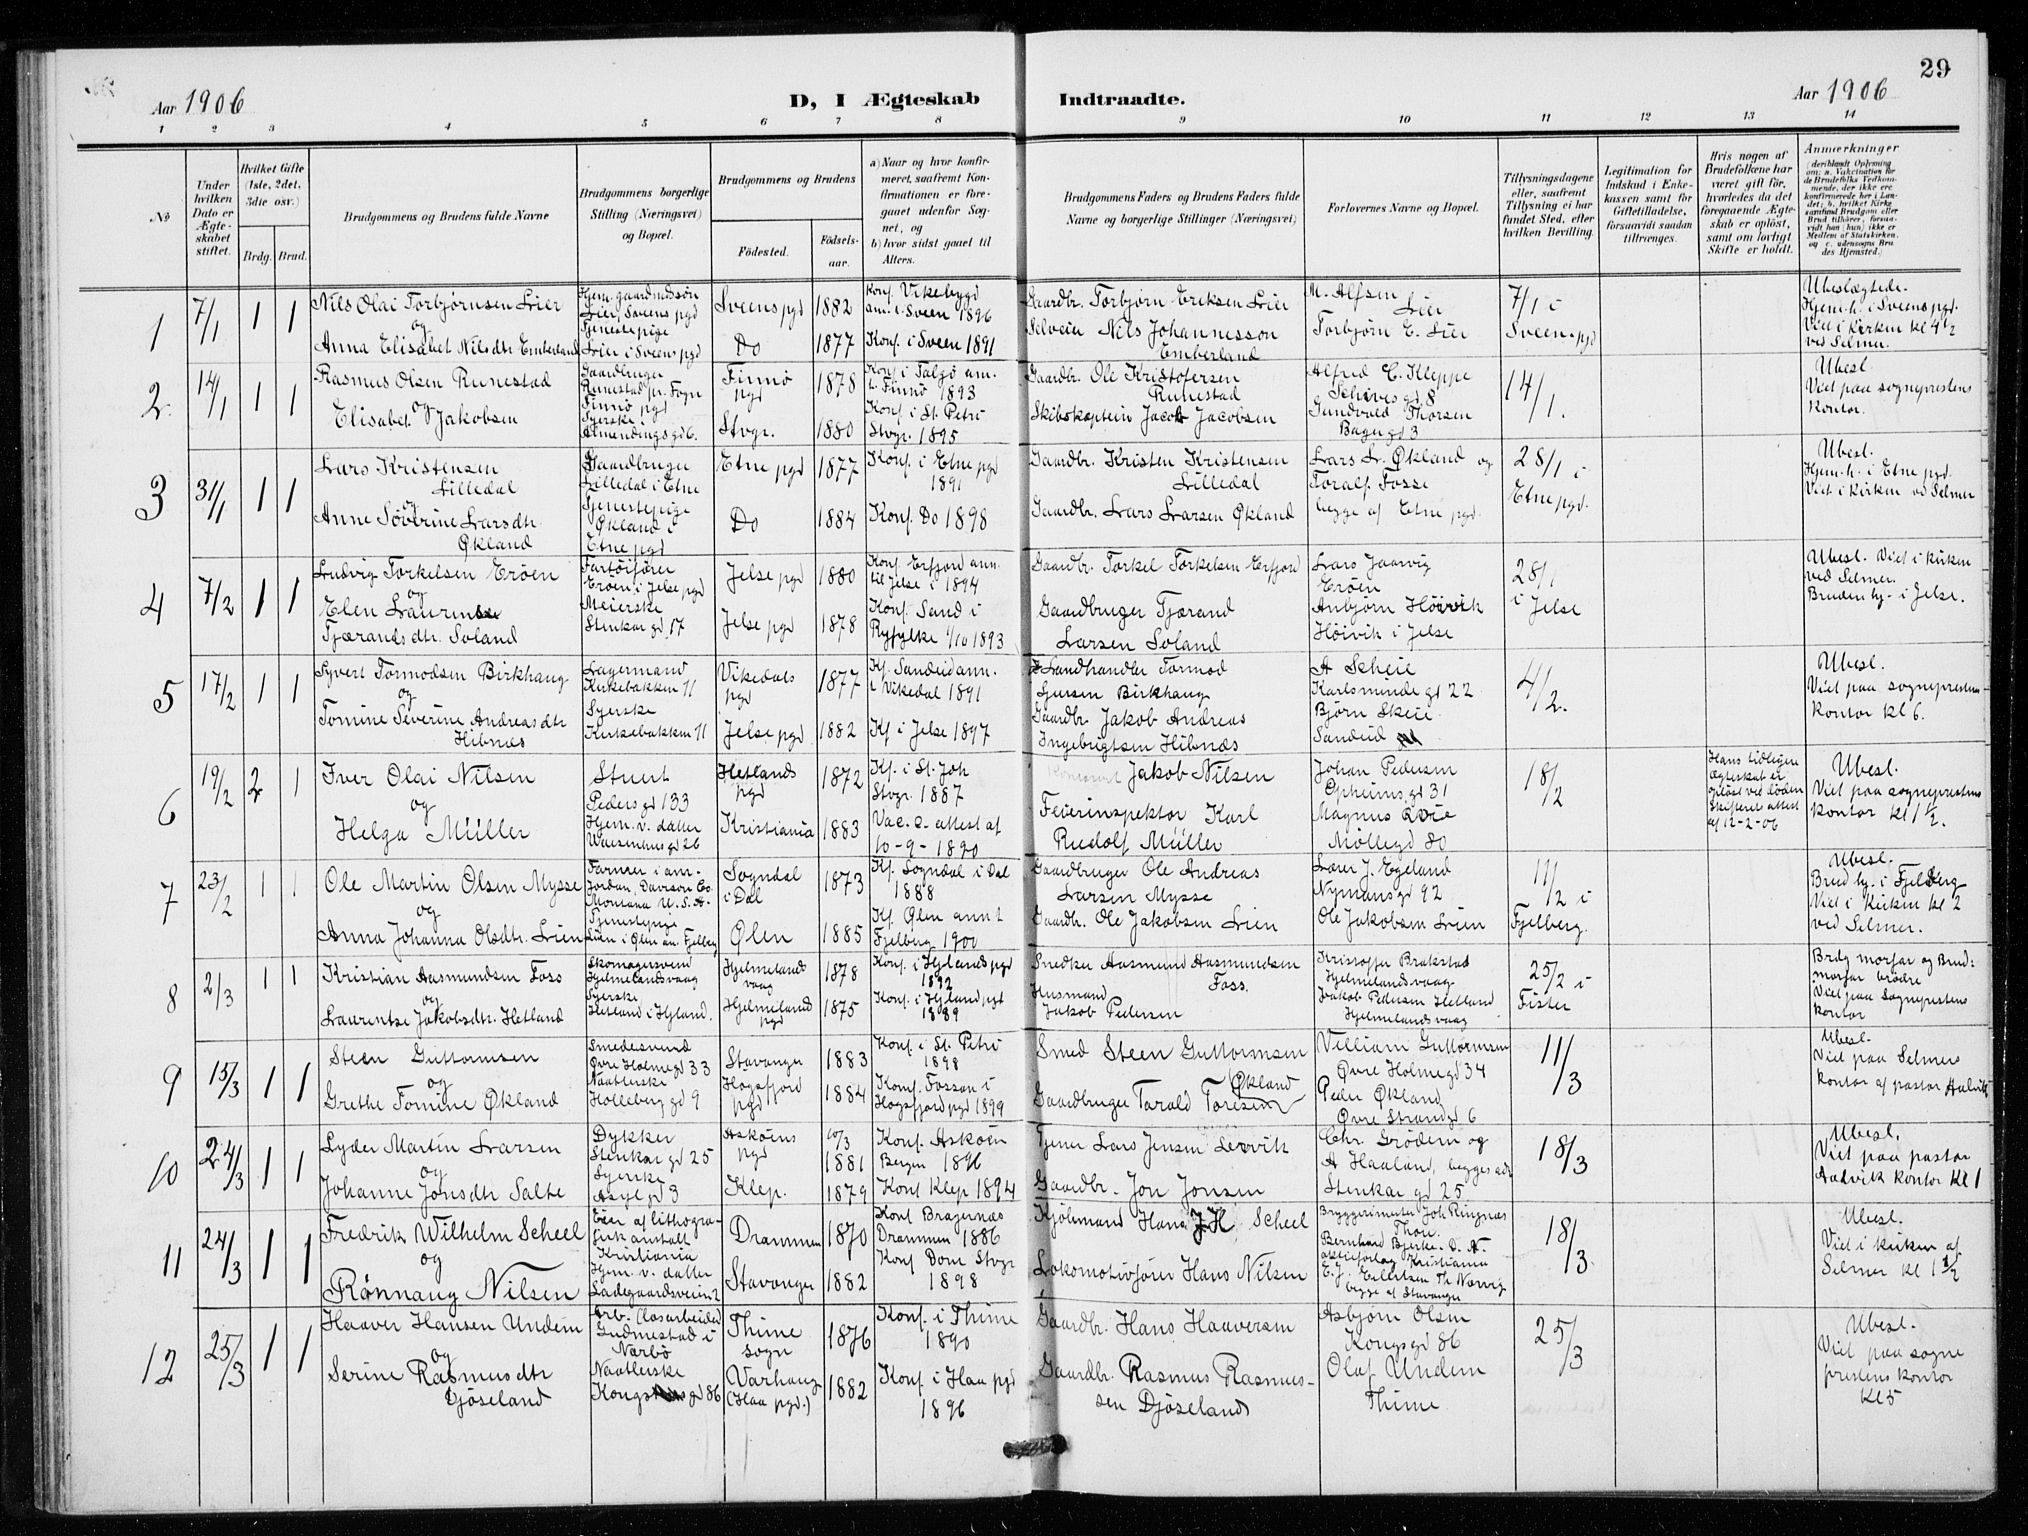 29
Aar 1906
D, I Ægteskab Indtraadte.
Aar 1906
1 2 3 4 5 6 7 8 9 10 11 12 13 14
No
Under hvilken Dato er Ægteskabet stiftet.
Hvilket Gifte (1ste, 2det, 3die osv.)
Brdg. Brud.
Brudgommens og Brudens fulde Navne
Brudgommens borgerlige Stilling (Næringsvei) og Bopæl.
Brudgommens og Brudens
Fødested.
Fødselsaar.
a) Naar og hvor konfirmeret, saafremt Konfirmationen er foregaaet udenfor Sognet, og
b) hvor sidst gaaet til Alters.
Brudgommens Faders og Brudens Faders fulde Navne og borgerlige Stillinger (Næringsvei)
Forlovernes Navne og Bopæl.
Tillysningsdagene eller, saafremt Tillysning ei har fundet Sted, efter hvilken Bevilling.
Legitimation for Indskud i Enkekassen samt for Giftetilladelse, forsaavidt saadan tiltrænges.
Hvis nogen af Brudefolkene har været gift før, hvorledes da det foregaaende Ægteskab er opløst, samt om lovligt Skifte er holdt.
Anmærkninger
(deriblandt Oplysning om: a. Vakcination for de Brudefolks Vedkommende, der ikke ere konfirmerede her i Landet; b. hvilket Kirkesamfund Brudgom eller Brud tilhører, forsaavidt han (hun) ikke er Medlem af Statskirken, og c. udensogns Brudes Hjemsted.)
1
7/1
1 1
Nils Olai Torbjørnsen Lier
og
Anna Elisabet Nilsdtr Emberland
Hjem. gaardmdssøn
Lier, Sveens pgd
Tjenestepige
Lier i Sveens pgd
Sveens pgd
Do
1882
1877
Konf. Vikebygd
an. t. Sveen 1896
Konf. i Sveen 1891
Gaardbr. Torbjørn Eriksen Lier
Selveier Nils Johannesson
Emberland
M. Alfsen
Lier
Torbjørn E. Lier
7/1 i
Sveen pgd
Ubeslægtede.
Hjem. h. i Sveens pgd.
Viet i Kirken kl 4 1/2
ved Selmer.
2
14/1
1 1
Rasmus Olsen Runestad
og
Elisabet Jakobsen
Gaardbruger
Runestad pr. Fogn
Finnø pgd
Syerske
Almendingsgd 6.
Finnø
pgd
Stvgr.
1878
1880
Konf i Talgø an.
t. Finnø 1893
Konf. i St. Petri
Stvgr. 1895
Gaardbr. Ole Kristofersen
Runestad
Skibskaptein Jacob Jacobsen
Alfred C. Kleppe
Schives gd 8
Gundvald Thorsen
Bager gd 3
14/1.
Ubesl
Viet paa sogneprestens
Kontor.
3
31/1
1 1
Lars Kristensen
Lilledal
og
Anne Søverine Larsdtr.
Økland
Gaardbruger
Lilledal i Etne
Tjenestepige
Økland i
Etne pgd
Etne pgd
Do
1877
1884
Konf. i Etne pgd
1891
Konf. Do 1898
Gaardbr. Kristen Kristensen
Lilledal
Gaardbr. Lars Larsen Økland
Lars L. Økland og
Toralf Fosse
begge af Etne pgd.
28/1 i
Etne pgd.
Ubesl.
Hjem. h. i Etne pgd.
Viet i kirken ved Selmer
4
7/2
1 1
Ludvig Torkelsen Erøen
og
Elen Laurense
Tjærandsdtr. Soland
Fartøifører
Erøen i Jelse pgd
Meierske
Stenkar gd 17
Jelse pgd
Jelse pgd
1880
1878
Konf Erfjord ann.
til Jelse i 1894
Konf. Sand i
Ryfylke 1/10 1893
Gaardbr. Torkel Torkelsen Erfjord
Gaardbruger Tjærand
Larsen Soland
Lars Jaarvig
Erøen
Anbjørn Høivik
Høivik i Jelse
28/1
i Jelse
Ubesl. Viet i kirken
ved Selmer.
Bruden hj. i Jelse.
5
17/2
1 1
Syvert Tormodsen Birkhaug
og
Tomine Severine Andreasdtr
Hibnæs
Lagermand
Kirkebakken 11
Syerske
Kirkebakken 11
Vikedals
pgd
Jelse pgd
1877
1882
Kf. Sandeid ann.
i Vikedal 1891
Kf i Jelse 1897
Landhandler Tormod
Birkhaug
Gaardbr. Jakob Andreas
Ingebrigtsen Hibnæs
A Scheie
Karlsminde gd 22
Bjørn Skeie
Sandeid
4/2.
Ubesl.
Viet paa sogneprestens
kontor kl 6.
6
19/2
2 1
Iver Olai Nilsen
og
Helga Müller
Stuert
Peders gd 133
Hjem. v. datter
Waisenhus gd 26
Hetlands
pgd
Kristiania
1872
1883
Kf. i St. Joh
Stvgr. 1887
Vac. c. attest af
10-9-1890
Jakob Nilsen
Feierinspektør Karl
Rudolf Müller
Johan Pedersen
Ophiems gd 31
Magnus
Møllegd 80
18/2
Hans tidligere
ægteskab er
opløst ved døden
Skifteret attest
af 12-2-06
Ubesl.
Viet paa sogneprestens
kontor kl 1 1/2.
7
23/2
1 1
Ole Martin Olsen Mysse
og
Anna Johanna Olsdtr. Lien
Farmer i am.
Jordan, Davison Co.
Montana U. S. A.
Tjenestepige
Lien i Ølen an. Fjelberg
Sogndal
i Dal
Ølen
1873
1885
Kf. Sogndal i Dal
1888
Kf. Ølen ann t
Fjelberg 1900
Gaardbruger Ole Andreas
Larsen Mysse
Gaardb. Ole Jakobsen Lien
Lærer J. Egeland
Nymansgd 92
Ole Jakobsen Lien
11/2 i
Fjelberg.
Ubesl.
Brud hj. i Fjelberg
Viet i Kirken kl 2
ved Selmer.
8
2/3
1 1
Kristian Aasmundsen Foss
og
Laurentse Jakobsdtr. Hetland
Skomagersvend
Hjelmelandsvaag
Syerske
Hetland i Hjland.
Hjelmelands
vaag
Hjelmeland
pgd
1878
1875
Konf. i Hjlands pgd
1892
Konf. i Hjland pgd
1889
Snedker Aasmund Aasmundsen
Foss.
Husmand
Jakob Pedersen
Kristoffer Brakstad
Hjelmelandsvaag
Jakob Pedersen Hetland
Hjelmelandsvaag
25/2 i
Fister
Brdg morfar og Brud:
morfar brødre
Viet paa Sogneprestens
kontor
9
15/3
1 1
Steen Guttormsen
og
Grethe Tomine Økland
Smedesvend
Øvre Holmegd 33
Naatlerske
Holleberg gd 9
Stavanger
Høgsfjord
pgd
1883
1884
Konf. i St. Petri
1898
Konf. Fossan i
Høgsfjord pgd 1899
Smed Steen Guttormsen
Økland
Gaardbruger Tarald Toresen
Villiam Guttormsen
Øvre Holmegd 34
Peder Økland
Øvre Strandgd 6
11/3
Ubesl.
Viet paa Selmers
kontor af pastor
10
24/3
1 1
Lyder Martin Larsen
og
Johanne Jonsdtr Salte
Dykker
Stenkar gd 25
Syerske
Asylgd 3
Askøens
pgd
Klep.
10/3
1881
1879
Konf. Askøen
Bergen 1896
Konf Klep 1894
Lars Jensen Lervik
Gaardbr. Jon Jonsen
Chr. Grødem og
A Haaland, begges adr
Stenkar gd 25
18/3
Ubesl.
Viet paa pastor
kontor kl 1
11
24/3
1 1
Fredrik Wilhelm Scheel
og
Rønnaug Nilsen
Eier af lithogra-
fisk anstalt
Kristiania
Hjem. v. datter
Ladegaardsveien 2
Drammen
Stavanger
1870
1882
Konf Bragernæs
Drammen 1886
Konf Dom Stvgr
1898
Kjøbmand Hans J.H. Scheel
Lokomotivfører Hans Nilsen
Bryggerimester Joh Ringnæs
Bernhard Bjerke. D. N.
aktieforlag Kristiania
E. J. Eilertsen Th Nærvig
begge af Stavanger
18/3.
Ubesl.
Viet i kirken af
Selmer kl 1 1/2
12
25/3
1 1
Haaver Hansen Undeim
og
Serine Rasmusdtr
Djøseland
Arb. Aasarbeider
Gudmestad i
Nærbø
Naatlerske
Kongsgd 86
Thime
sogn
Varhaug
(Haa pgd.)
1876
1882
Konf. i Thime
1890
Konf. i Haa pgd
1896
Gaardbr. Hans Haaversen
Gaardbr. Rasmus Rasmus-
sen Djøseland
Asbjørn Olsen
Kongsgd 86
Olaf Undem
Thime
25/3
Ubesl.
Viet paa sogne
prestens kontor
kl 5